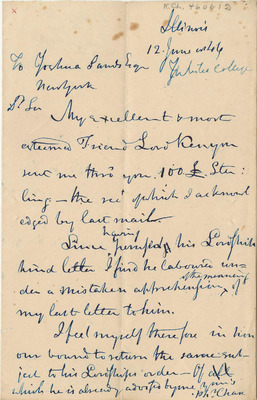 K.Ch. 460612
Illinois
12 June 1846
Jubilee College
To Joshua Sands Esqr
New York
Dr Sir
My excellent & most
esteemed Friend Lord Kenyon
sent me thro' you 100 £ Ster
ling – the rec^t of which I acknowl
edged by last mail–
Since having perused his Lordship's
kind letter I find he laboured un
der a mistaken apprehension, of the meaning of
my last letter to him.
I feel myself therefore in hon
our bound to return the same sub
ject to his Lordships order – Of all
which he is already advised by me. Yours
Ph. Chase